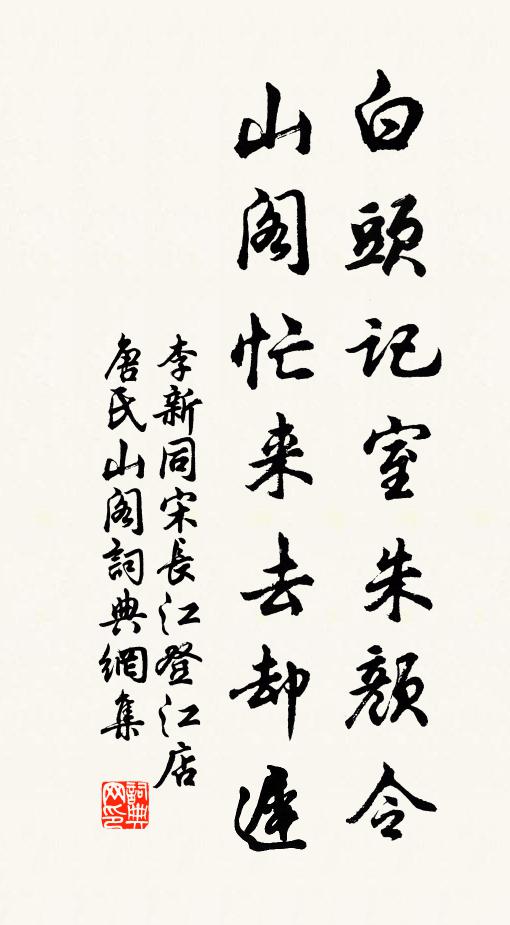 白頭記室朱顏令
山阁忙来去却遲
李新同宋長江登江店
唐氏山阁詞典網集
詞典网印